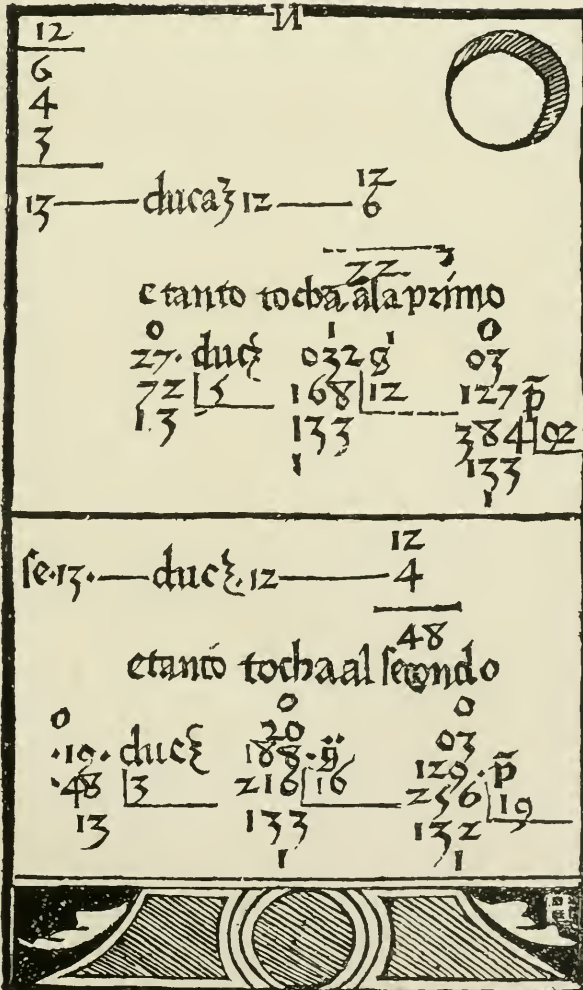 12
6
4
3
13 ducaꜣ 12 12
6
72
e tanto tocha a la primo
0 1 0
27. duc 032 g 03
72 5 168 12 127 p̄
13 133 384 92
1 133
1
se.13. duc. 12 12
4
48
e tanto tocha al secondo
0 0 0
.19. duc 20 03
48 3 188. g̈ 129. p̄
13 216 16 256 19
133 132
1 1